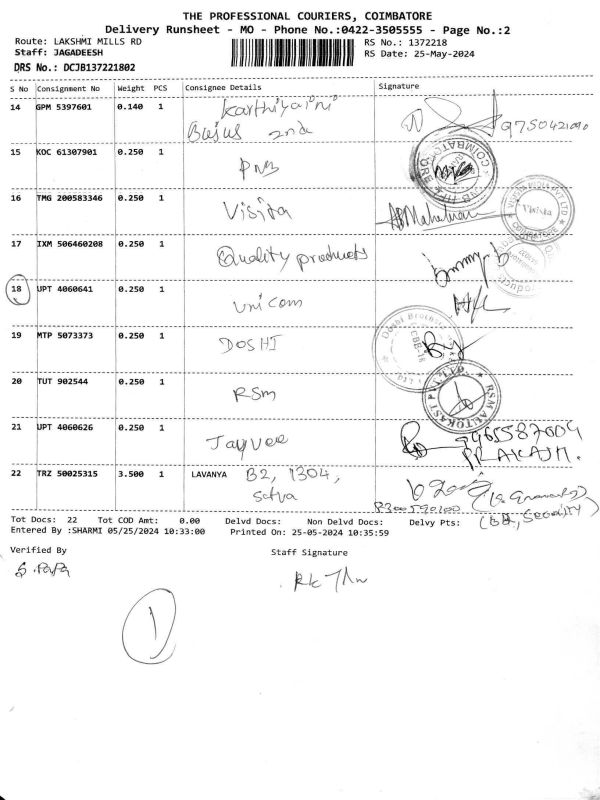 THE PROFESSIONAL COURIERS, COIMBATORE
Delivery Runsheet - MO - Phone No.:0422-3505555 - Page No.:2
Route: LAKSHMI MILLS RD RS No.: 1372218
Staff: JAGADEESH RS Date: 25-May-2024
DRS No.: DCJB137221802
S No Consignment No Weight PCS Consignee Details Signature
14 GPM 5397601 0.140 1 Karthiyaini
Byjus 2nd 9750421090
15 KOC 61307901 0.250 1 PNB
COIMBATORE
16 TMG 200583346 0.250 1 Visista
Visista
COIMBATORE
17 IXM 506460208 0.250 1 Quality products
18 UPT 4060641 0.250 1 Unicom
19 MTP 5073373 0.250 1 DOSHI
Doshi
CBE-18
20 TUT 902544 0.250 1 RSM
RSM AUTOKAST PVT. LTD.
21 UPT 4060626 0.250 1 Jayvee
PRAKASH.
22 TRZ 50025315 3.500 1 LAVANYA B2, 1304,
Satva
Security)
Tot Docs: 22 Tot COD Amt: 0.00 Delvd Docs: Non Delvd Docs: Delvy Pts:
Entered By :SHARMI 05/25/2024 10:33:00 Printed On: 25-05-2024 10:35:59
Verified By Staff Signature
S. PAPA
1